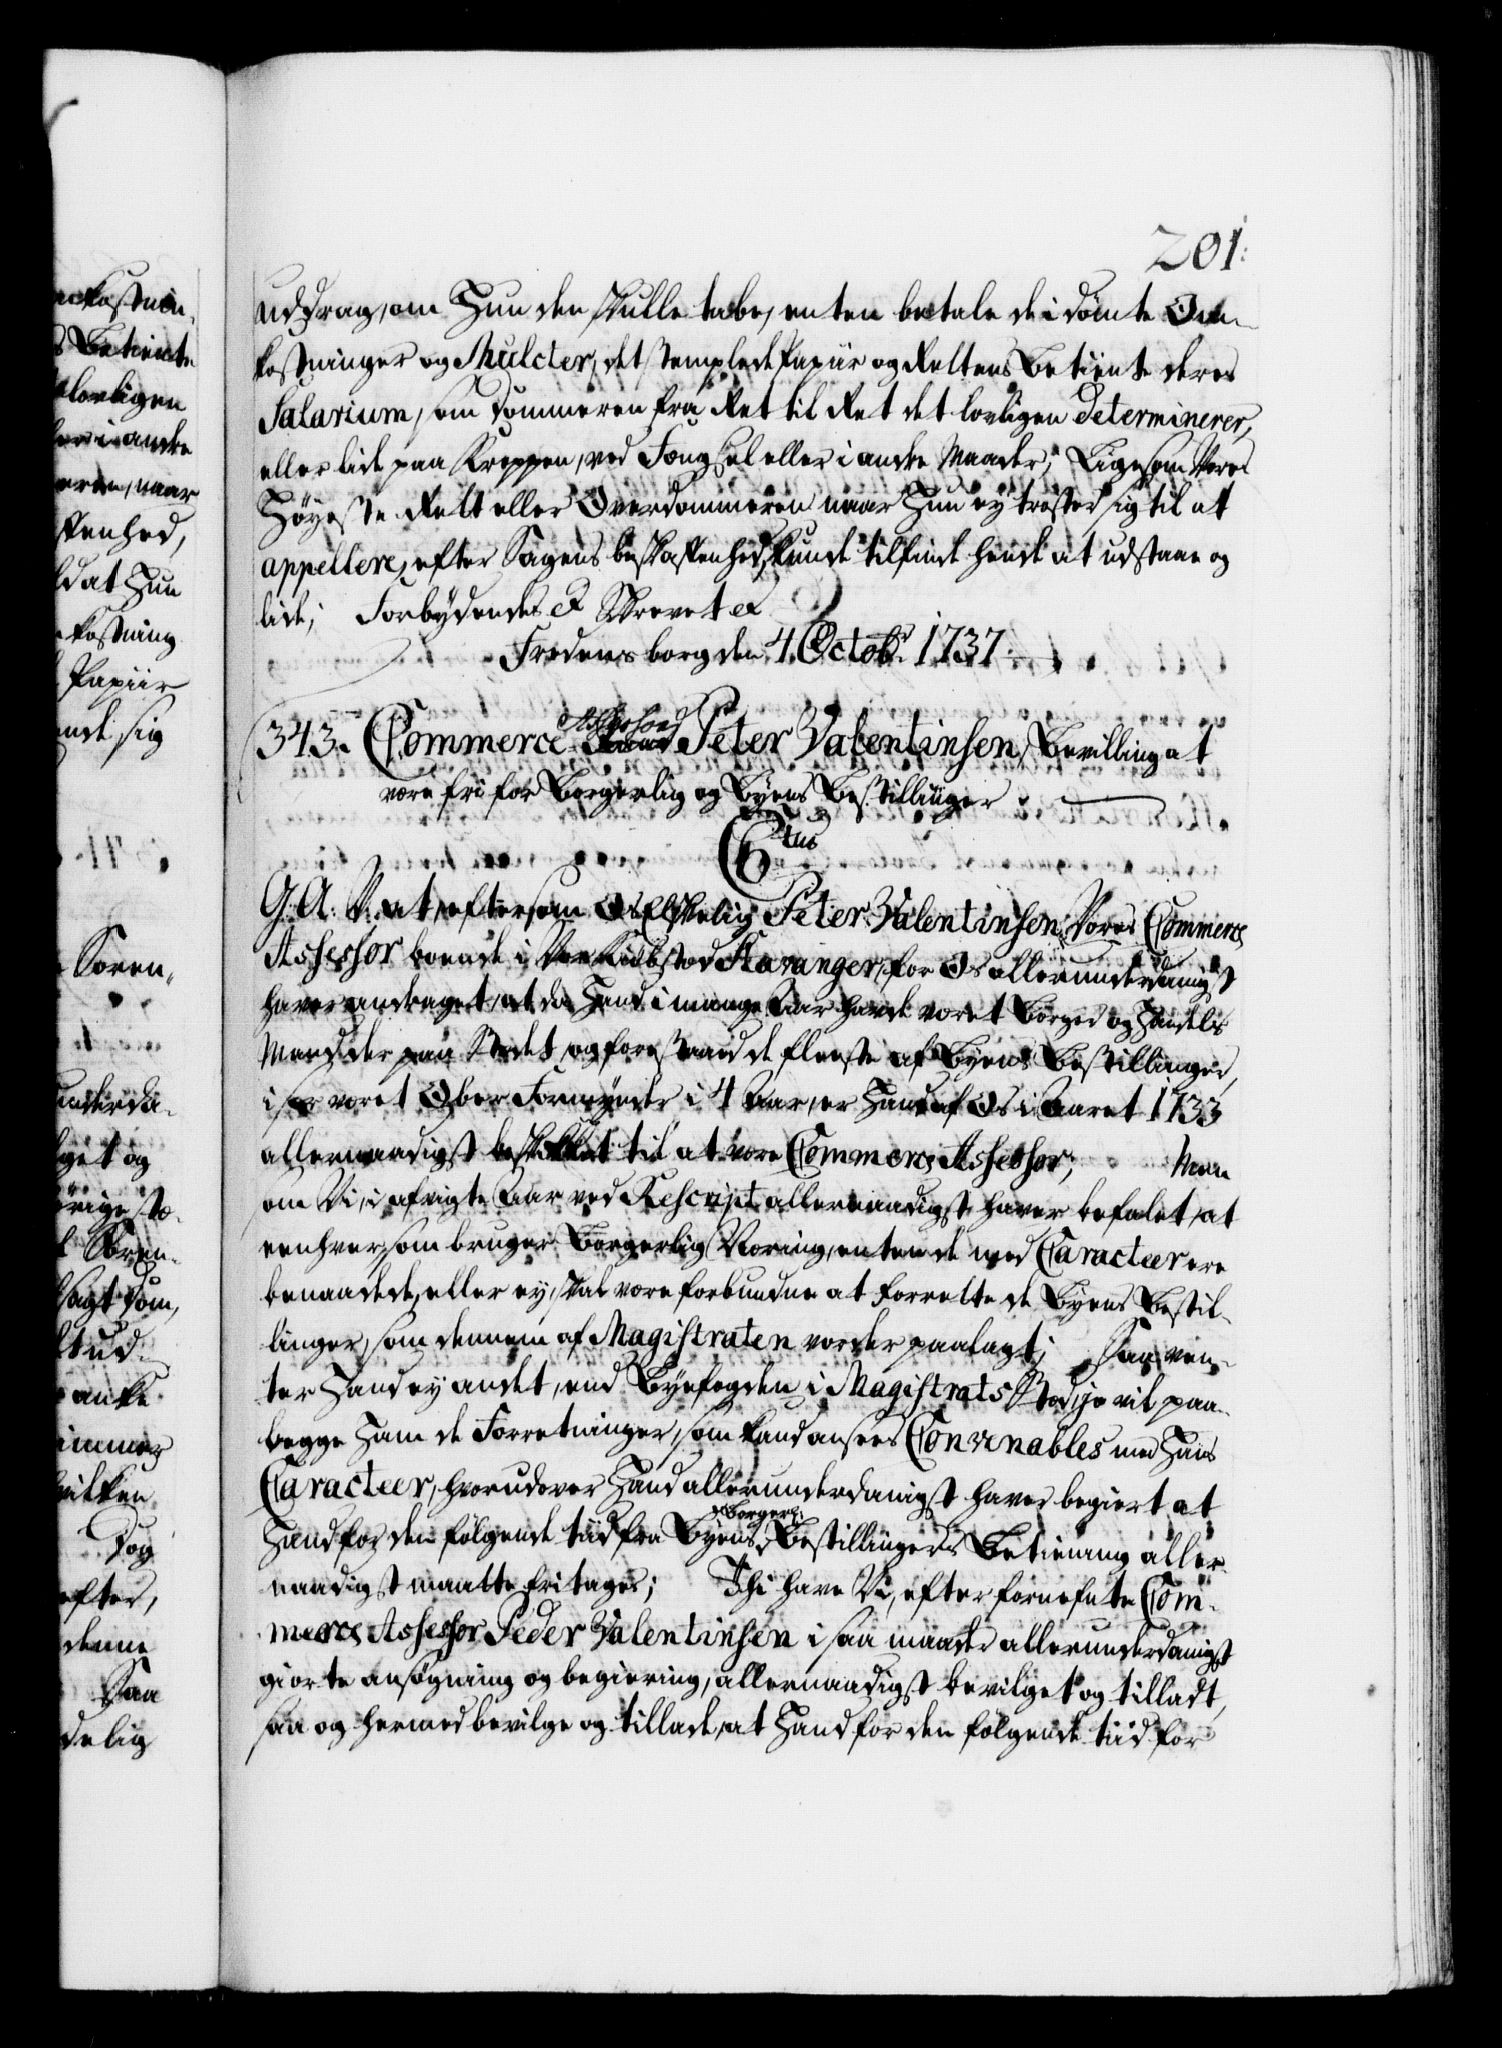 201.
uddrag, om Hun den skulle tabe, enten betale de i dømte Om-
kostninger og Mulcter, det stemplede Papiir og Rettens Betiente deres
Salarium, som Dommeren fra Ret til Ret det lovligen determinerer,
eller lide paa Kroppen, ved Fengsel eller i andre Maader, Ligesom Vores
Høyeste Rett eller Overdommeren naar Hun ey trøster sig til at
appellere, efter Sagens beskaffenhed, kunde tilfinde hende at udstaae og
lide; Forbydendes &c Skrevet &c
Fredensborg den 4 Octobr. 1737.
343. Commerce Assessor Peter Valentinsen, Bevilling at
være fri for Borgerlig og Byens Bestillinger
C 6tus
G. A. V. at, eftersom Os Elskelig Peter Valentinsen, Vores Commerce
Assessor boende i Vor Kiøbstad Stavanger, for Os allerunderdanigst
haver andraget, at da Hand i mange Aar havde været Borger og Handels
Mand der paa Stedet, og forestaaed de fleeste af Byens Bestillinger,
især været Ober Formynder i 4 Aar, er Hand af Os i Aaret 1733
allernaadigst beskikket til at være Commerce Assessor; Men
om Vi, i afvigte Aar ved Rescript allernaadigst haver befalet, at
eenhver, som bruger Borgerlig Næring, enten de med Caracteer ere
benaadede, eller ey, skal være forbundne at forrette de Byens Bestil-
linger, som dennem af Magistraten vorder paalagt; Saa ven-
ter Hand ey andet, end Byefogden i Magistrats Stædije vil paa-
legge Ham de Forretninger, som kand ansees Convenables med Hans
Caracteer, hvorudover Hand allerunderdanigst haver begiert at
Hand for den følgende tiid fra Byens Borgerl: Bestillingers Betiening aller-
naadigst maatte fritages; Thi have Vi, efter fornefnte Com-
merce Assessor Peder Valentinsen i saa maade allerunderdanigst
giorte ansøgning og begiering, allernaadigst bevilget og tilladt,
saa og hermed bevilge og tillade, at Hand for den følgende tiid for